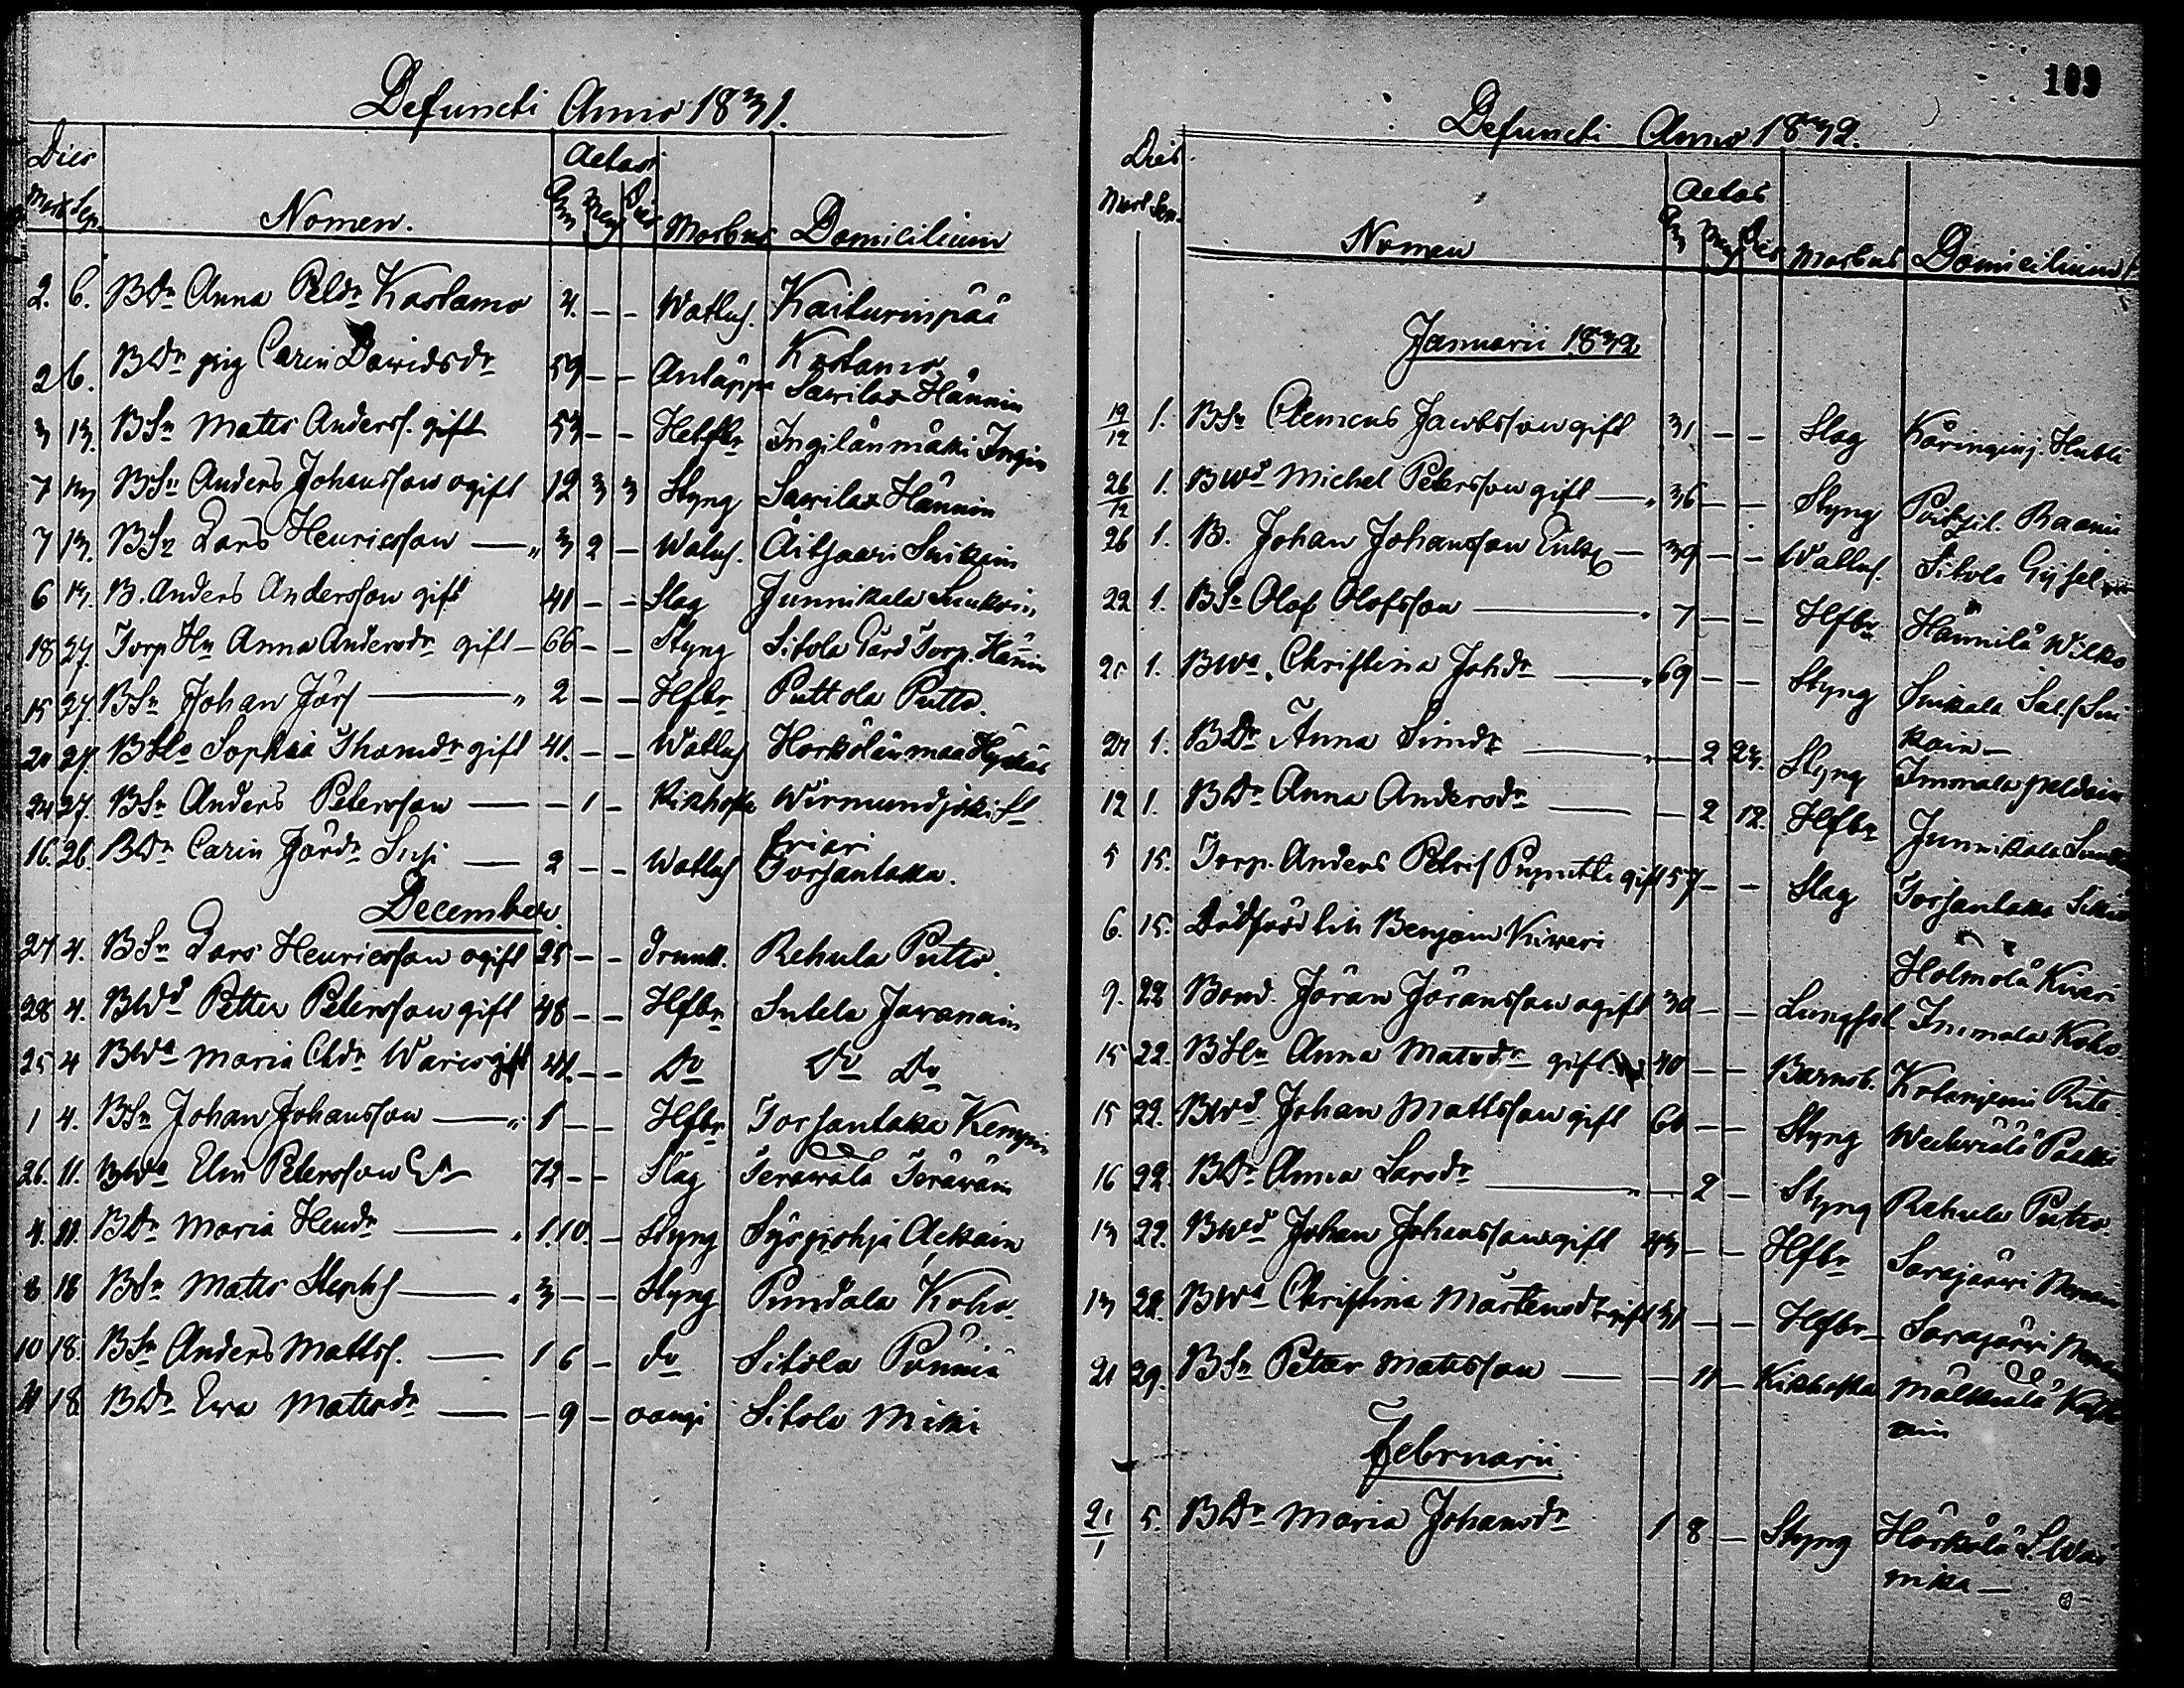 Defuncti Anno 1831.
Dies Aetas
Mort Sep. Nomen. An Men Dies Morbus Domicilium
2. 6. BDr Anna Peldr Kastamo 4. - - Wattus. Kaiturinpää
Kostamo
2 6. BDr pig Carin Davidsdr 59 - - Antäppa Sawilax Hännin
3 13. BSn Matts Anderss. gift 53 - - Hetsfbr Ingilänmäki Ingin
7 13 BSn Anders Johansson ogift 12 3 3 Styng Sawilax Hännin
7 13. BSn Lars Henricsson — " 3 2 - Watus. Äitsaari Suikain
6 13. B. Anders Andersson gift 41 - - Slag Junnikala
18 27. Torp Hu Anna Andersdr gift - 66 - - Styng Sitola Gård Torp. Hänin
15 27. BSn Johan Jörs — " 2 - - Hfbr Puttola Putto.
20 27. BHu Sophia Thomdr gift 41. - - Wattus Horkölänmaa
24 27. BSn Anders Petersson — - 1 - Kikhosta Wirmundjoki
16. 26. BDr Carin Jördr Susi — 2 - - Wattus Torsantaka.
December.
27 4. BSn Lars Henricsson ogift 25 - - Drunk. Rehula Putto.
28 4. BWd Petter Petersson gift 48 - - Hfbr Sutela Javanain
25 4 BWa Maria Chdr Waris gift 41. - - Do Do Do
1 4. BSn Johan Johansson — " 1 - - Hfbr Torsantaka Kempin
26. 11. BWa Elin Petersson 72 - - Slag Teräwälä Teräwäin
4. 11. BDr Maria Hendr — " 1. 10. - Styng Syöpiohja Ackain
8 18 BSn Matts Stephs — " 3 - - Styng Pundala Koho
10 18 BSn Anders Mattss. — 1 6 - do Sitola Pönniä
11 18 BDr Ewa Mattsdr — - 9 - oangi Sitola Miki
109
Defuncti Anno 1832.
Dies. Aetas
Mort Sep. Nomen An Men Dies Morbus Domicilium
Januarii 1832
19/12 1. BSn Clemens Jacobsson gift 31. - - Slag Käringinj. Hutli
26/12 1. BWd Michel Petersson gift — " 36 - - Styng Poikjil. Raanii
26 1. B. Johan Johansson Enkl — 39 - - Wattus. Sitola
22 1. BSn Olof Olofsson — " 7 - - Hfbr Hännilä Wilko
25 1. BWa. Christina Johdr — " 69 - - Styng Suikala Sal. Sui
kain —
27 1. BDr Anna Simdr — " - 2 23. Styng Immala Peldain
12 1. BDr Anna Andersdr — - 2 12. Hfbr Junnikala
5 15. Torp. Anders Petris Puputti gift 57 - - Slag Torsantaka
6. 15. Dödfödd till Benjam Kiweri Holmölä Kiveri
9. 22 Bond. Jöran Jöransson ogift 30 - - Lungsot Immala Koho
15 22. BHu Anna Matsdr gift 40 - - Barnsb. Kotaniemi
15 22. BWd Johan Mattsson gift 60 - - Styng
16 22. BDr Anna Larsdr — " - 2 - Styng Rehula Putto.
13 22. BWd Johan Johansson gift 43 - - Hfbr Sarajärwi
13 22. BWa Christina Mårtensdr gift 31 - - Hfbr - Sarajärwi
21 29. BSn Petter Mattsson — - 11 - Kikhosta Mälkiälä
ain
Februarii.
21/1 5. BDr Maria Johansdr 1 8 - Styng Härskiälä
nika —